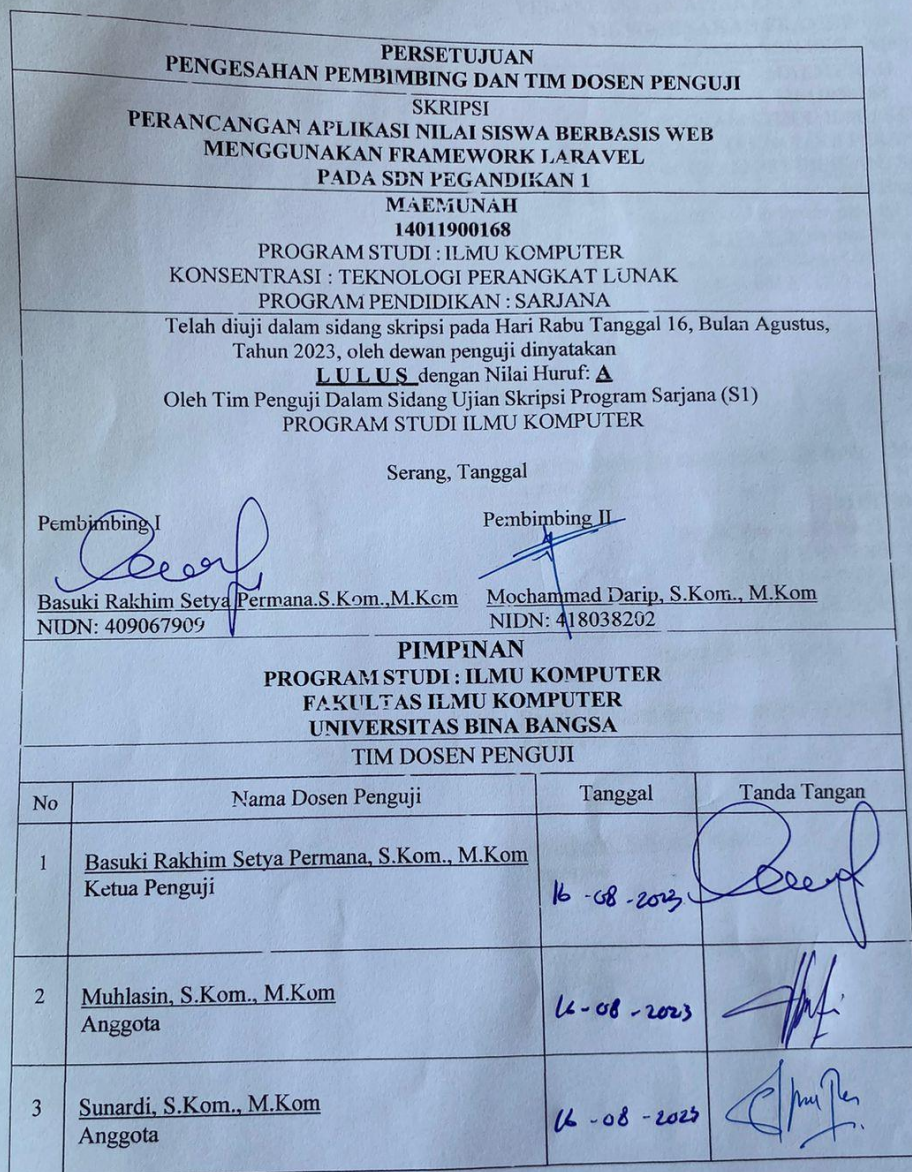 PERSETUJUAN
PENGESAHAN PEMBIMBING DAN TIM DOSEN PENGUJI
SKRIPSI
PERANCANGAN APLIKASI NILAI SISWA BERBASIS WEB
MENGGUNAKAN FRAMEWORK LARAVEL
PADA SDN PEGANDIKAN 1
MAEMUNAH
14011900168
PROGRAM STUDI : ILMU KOMPUTER
KONSENTRASI : TEKNOLOGI PERANGKAT LUNAK
PROGRAM PENDIDIKAN : SARJANA
Telah diuji dalam sidang skripsi pada Hari Rabu Tanggal 16, Bulan Agustus,
Tahun 2023, oleh dewan penguji dinyatakan
L U L U S dengan Nilai Huruf: A
Oleh Tim Penguji Dalam Sidang Ujian Skripsi Program Sarjana (S1)
PROGRAM STUDI ILMU KOMPUTER
Serang, Tanggal
Pembimbing I Pembimbing II
Basuki Rakhim Setya Permana.S.Kom.,M.Kom Mochammad Darip, S.Kom., M.Kom
NIDN: 409067909 NIDN: 418038202
PIMPINAN
PROGRAM STUDI : ILMU KOMPUTER
FAKULTAS ILMU KOMPUTER
UNIVERSITAS BINA BANGSA
TIM DOSEN PENGUJI
No Nama Dosen Penguji Tanggal Tanda Tangan
1 Basuki Rakhim Setya Permana, S.Kom., M.Kom
Ketua Penguji 16-08-2023
2 Muhlasin, S.Kom., M.Kom
Anggota 16-08-2023
3 Sunardi, S.Kom., M.Kom
Anggota 16-08-2023